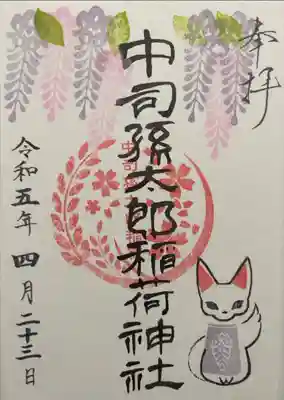 奉拝
中司孫太郎稲荷神社
令和五年四月二十三日